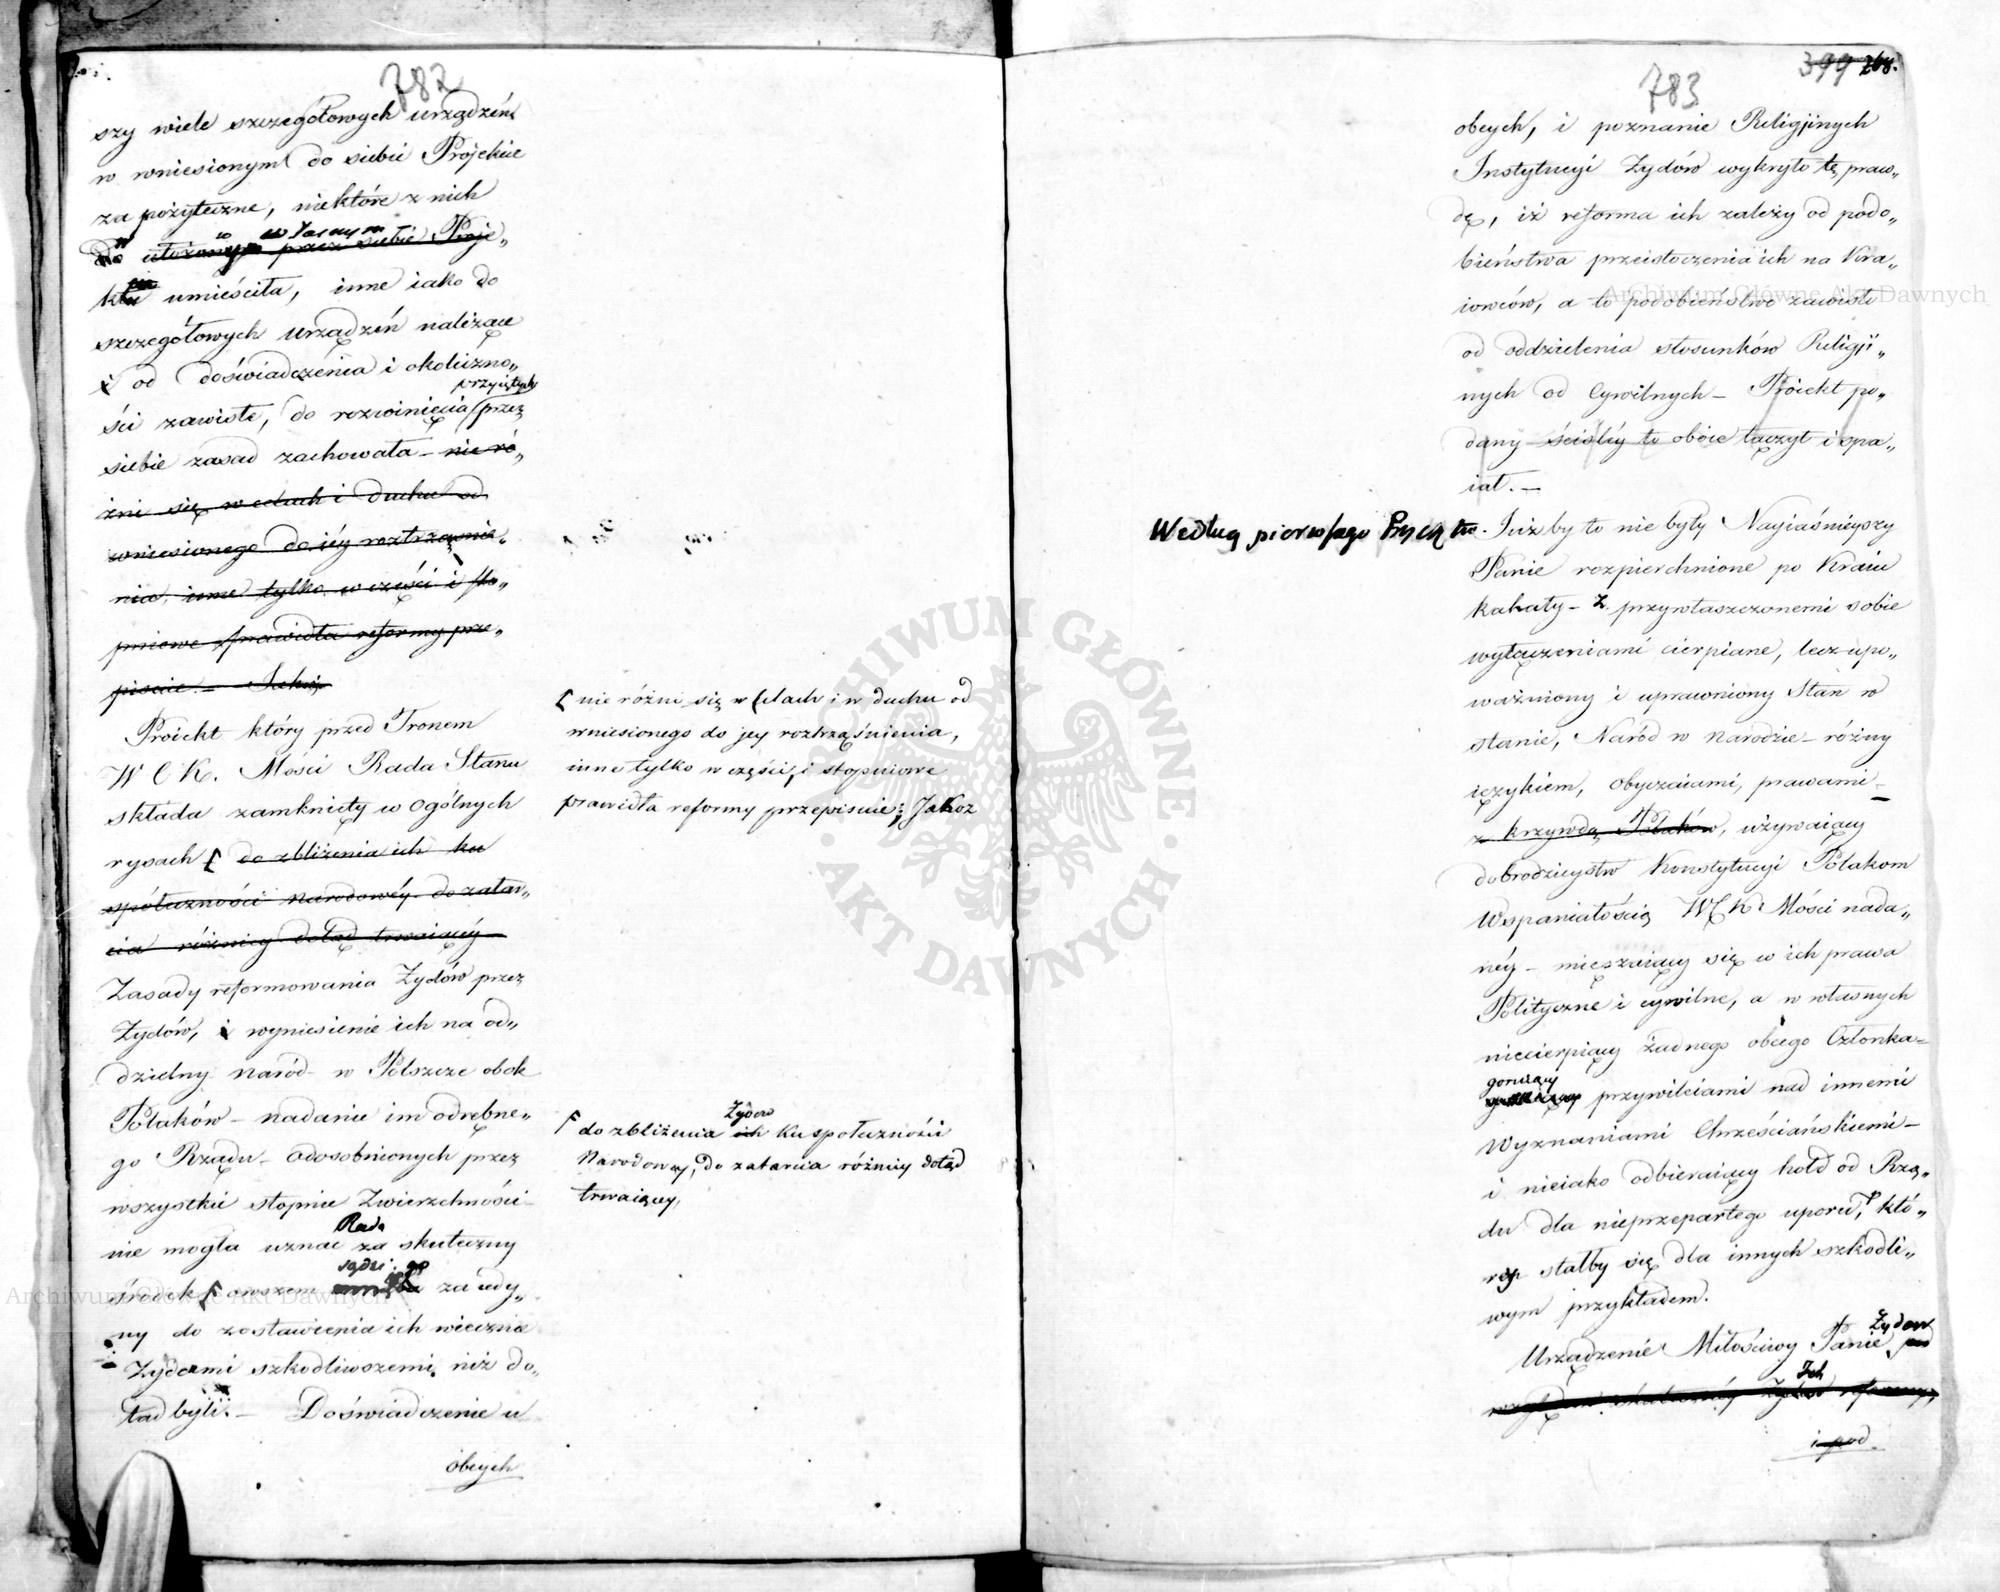 782
szy wiele szczegółowych urządzeń
w wniesionym do siebie Projekcie
za pożyteczne, niektóre z nich
w własnym
do ułożonego przez siebie Proje„
ktu umieściła, inne iako do
szczegółowych urządzeń należące
i od doświadczenia i okoliczno„
przyiętych
ści zawisłe, do rozwinięcia przez
siebie zasad zachowała – nie ró„
żni się w celach i duchu od
wniesionego do iéy roztrząśnie„
nia, inne tylko w części i sto„
pniowe prawidła reformy prze„
pisuie. – Jakoż
Proiekt który przed Tronem
W C K. Mości Rada Stanu
składa zamknięty w ogólnych
rysach do zbliżenia ich ku
spółeczności narodowéy do zatar„
cia różnicy dotąd trwaiącéy –
Zasady reformowania Żydów przez
Żydów, i wyniesienie ich na od„
dzielny naród w Polszcze obok
Polaków – nadanie im odrębne„
go Rządu – odosobnionych przez
wszystkie stopnie Zwierzchności –
Rada
nie mogła uznać za skuteczny
sądzi go
środek owszem za iedy„
ny do zostawienia ich wiecznie
Żydami szkodliwszemi niż do„
tąd byli. – Doświadczenie u
obcych
nie różni się w celach i w duchu od
wniesionego do jey roztrząśnienia,
inne tylko w części, i stopniowe
prawidła reformy przepisuie; Jakoz
Żydow
do zbliżenia ich ku społeczności
Narodowey, do zatarcia różnicy dotąd
trwaiącey,
783
399 268.
obcych, i poznanie Religijnych
Instytucyi Żydów wykryło tę praw„
dę, iż reforma ich zależy od podo„
bieństwa przeistoczenia ich na Kra„
iowców, a to podobieństwo zawisło
od oddzielenia stosunków Religij„
nych od Cywilnych – Proiekt po„
dany ściśléy to oboie łączył i spa„
iał. –
Według pierwszego
Już by to nie były Nayiaśnieyszy
Panie rozpierzchnione po Kraiu
kahały – z przywłaszczonemi sobie
wyłączeniami cierpiane, lecz upo„
ważniony i uprawniony Stan w
stanie, Naród w narodzie – różny
ięzykiem, obyczaiami, prawami –
z krzywdą Polaków, używaiący
dobrodzieystw Konstytucyi Polakom
Wspaniałością W C K Mości nada„
néy – mieszaiący się w ich prawa
Polityczne i cywilne, a w własnych
niecierpiący żadnego obcego Członka –
goruiący
przywileiami nad innemi
Wyznaniami Chrześciańskiemi –
i nieiako odbieraiący hołd od Rzą„
du dla nieprzepartego uporu, któ„
ry stałby się dla innych szkodli„
wym przykładem.
Żydow
Urządzenie Miłościwy Panie pod
Ich
względem skuteczney Żydów reformy,
i pod
ARCHIWUM GŁÓWNE AKT DAWNYCH
Archiwum Główne Akt Dawnych
Archiwum Główne Akt Dawnych